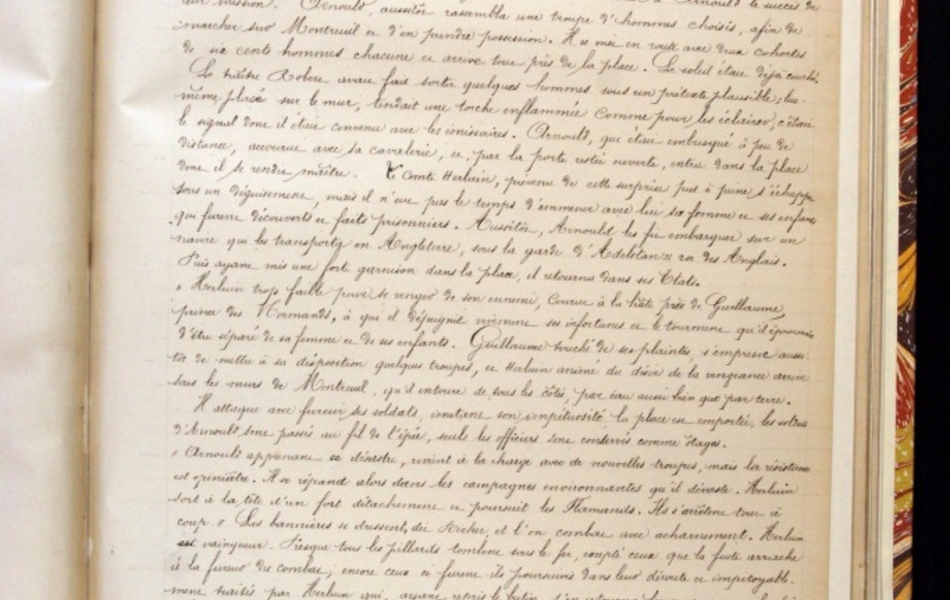 leur mission. Arnould, aussitôt rassembla une troupe d'hommes choisis, afin de
marcher sur Montreuil et d'en prendre possession. Il se met en route avec deux cohortes
de six cents hommes chacune et arrive tout près de la place. Le soleil était déjà couché.
Le traître Robert avait fait sortir quelques hommes sous un prétexte plausible; lui-
même placé sur le mur, tendait une torche enflammée comme pour les éclairer, c'était
le signal dont il était convenu avec les émissaires. Arnould, qui était embusqué à peu de
distance, accourut avec sa cavalerie, et, par la porte restée ouverte, entra dans la place
dont il se rendit maître. Le Comte Herluin, prévenu de cette surprise put à peine s'échapper
sous un déguisement, mais il n'eut pas le temps d'emmener avec lui sa femme et ses enfants
qui furent découverts et faits prisonniers. Aussitôt, Arnould les fit embarquer sur un
navire qui les transporta en Angleterre, sous la garde d'Adelstan roi des Anglais.
Puis ayant mis une forte garnison dans la place, il retourna dans ses Etats.
" Herluin trop faible pour se venger de son ennemi, courut à la hâte près de Guillaume,
prince des Normands, à qui il dépeignit vivement ses infortunes et le tourment qu'il éprouvait
d'être séparé de sa femme et de ses enfants. Guillaume touché de ses plaintes, s'empresse aussi-
tôt de mettre à sa disposition quelques troupes, et Herluin animé du désir de la vengeance arrive
sous les murs de Montreuil, qu'il entoure de tous les côtés, par eau aussi bien que par terre.
Il attaque avec fureur ses soldats, imitent son impétuosité, la place est emportée, les soldats
d'Arnould sont passés au fil de l'épée, seuls les officiers sont conservés comme ôtages.
" Arnould apprenant ce désastre, revint à la charge avec de nouvelles troupes, mais la résistance
est opiniâtre. Il se répand alors dans les campagnes environnantes qu'il dévaste. Herluin
sort à la tête d'un fort détachement et poursuit les Flamands. Ils s'arrêtent tout à
coup. " Les bannières se dressent, dit Richer, et l'on combat avec acharnement. Herluin
est vainqueur. Presque tous les pillards tombent sous le fer, excepté ceux que la fuite arrache
à la fureur du combat; encore ceux ci furent ils poursuivis dans leur déroute et impitoyable-
ment traités par Herluin qui, ayant repris le butin, s'en retourna